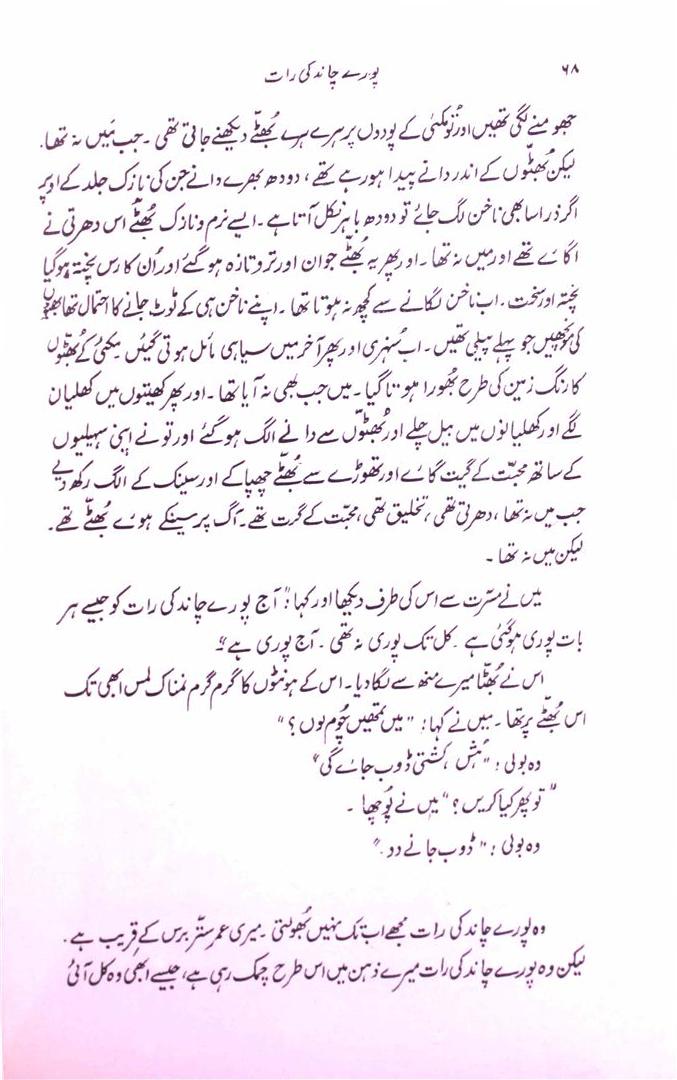 ۶۸
پورے چاند کی رات
جھومنے لگی تھیں اور تو مکئی کے پودوں پر ہرے ہرے بھُٹّے دیکھنے جاتی تھی ۔ جب مَیں نہ تھا.
لیکن بھُٹّوں کے اندر دانے پیدا ہو رہے تھے ، دودھ بھرے دانے جن کی نازک جلد کے اوپر
اگر ذرا سا بھی ناخن لگ جائے تو دودھ باہر نکل آتا ہے ۔ ایسے نرم و نازک بھُٹّے اس دھرتی نے
اگائے تھے اور میں نہ تھا ۔ اور پھر یہ بھُٹّے جوان اور تر و تازہ ہو گئے اور اُن کا رس پختہ ہو گیا
پختہ اور سخت ۔ اب ناخن لگانے سے کچھ نہ ہوتا تھا ۔ اپنے ناخن ہی کے ٹوٹ جانے کا احتمال تھا بھٹّوں
کی مونچھیں جو پہلے پیلی تھیں ۔ اب سُنہری اور پھر آخر میں سیاہی مائل ہوتی گئیں مکئی کے بھُٹّوں
کا رنگ زمین کی طرح بھُورا ہوتا گیا ۔ میں جب بھی نہ آیا تھا ۔ اور پھر کھیتوں میں کھلیان
لگے اور کھلیانوں میں بیل چلے اور بھُٹّوں سے دانے الگ ہو گئے اور تو نے اپنی سہیلیوں
کے ساتھ محبّت کے گیت گائے اور تھوڑے سے بھُٹّے چھپا کے اور سینک کے الگ رکھ دیے
جب میں نہ تھا ، دھرتی تھی ، تخلیق تھی ، محبّت کے گرت تھے ۔ آگ پر سینکے ہوئے بھُٹّے تھے ۔
لیکن میں نہ تھا ۔
میں نے مسّرت سے اس کی طرف دیکھا اور کہا : " آج پورے چاند کی رات کو جیسے ہر
بات پوری ہو گئی ہے ۔ کل تک پوری نہ تھی ۔ آج پوری ہے "
اس نے بھُٹّا میرے منھ سے لگا دیا ۔ اس کے ہونٹوں کا گرم گرم نمناک لمس ابھی تک
اس بھُٹّے پر تھا ۔ میں نے کہا : " میں تمھیں چُوم لوں ؟ "
وہ بولی : " ہُش ، کشتی ڈوب جائے گی "
" تو پھر کیا کریں ؟ " میں نے پُوچھا ۔
وہ بولی : " ڈوب جانے دد ۔ "
وہ پورے چاند کی رات مجھے اب تک نہیں بھُولتی ۔ میری عمر ستّر برس کے قریب ہے .
لیکن وہ پورے چاند کی رات میرے ذہن میں اس طرح چمک رہی ہے ، جیسے ابھی وہ کل آئی